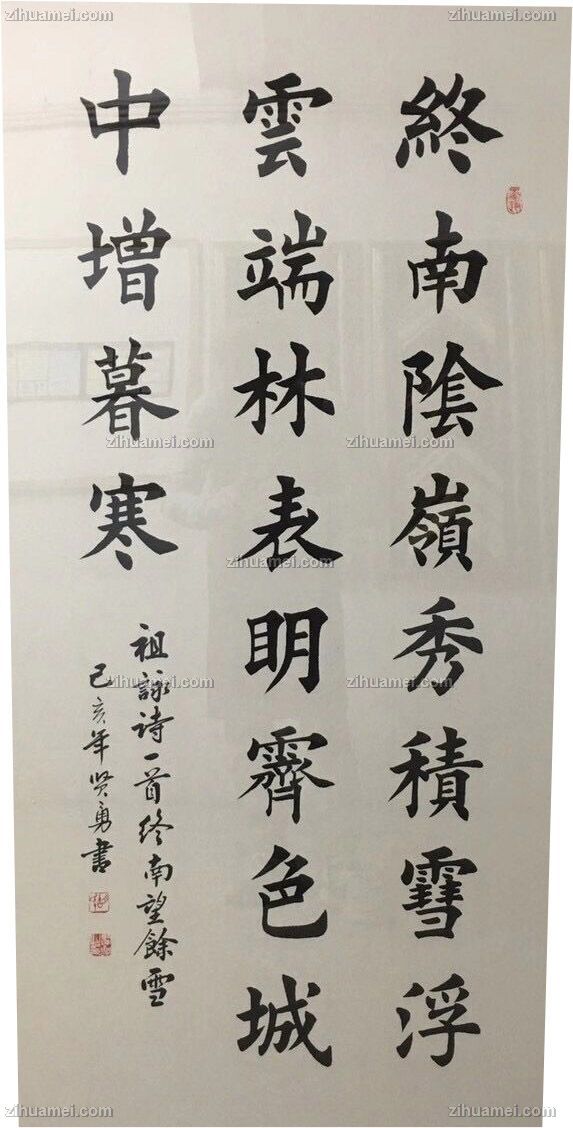 終南陰嶺秀積雪浮
雲端林表明霽色城
中增暮寒
祖詠诗一首终南望餘雪
己亥年贤勇書
zihuamei.com
zihuamei.com
zihuamei.com
zihuamei.com
zihuamei.com
zihuamei.com
zihuamei.com
zihuamei.com
zihuamei.com
zihuamei.com